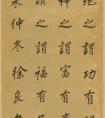 地之謂功有
神之謂富有
之謂福有
未仲冬徐良